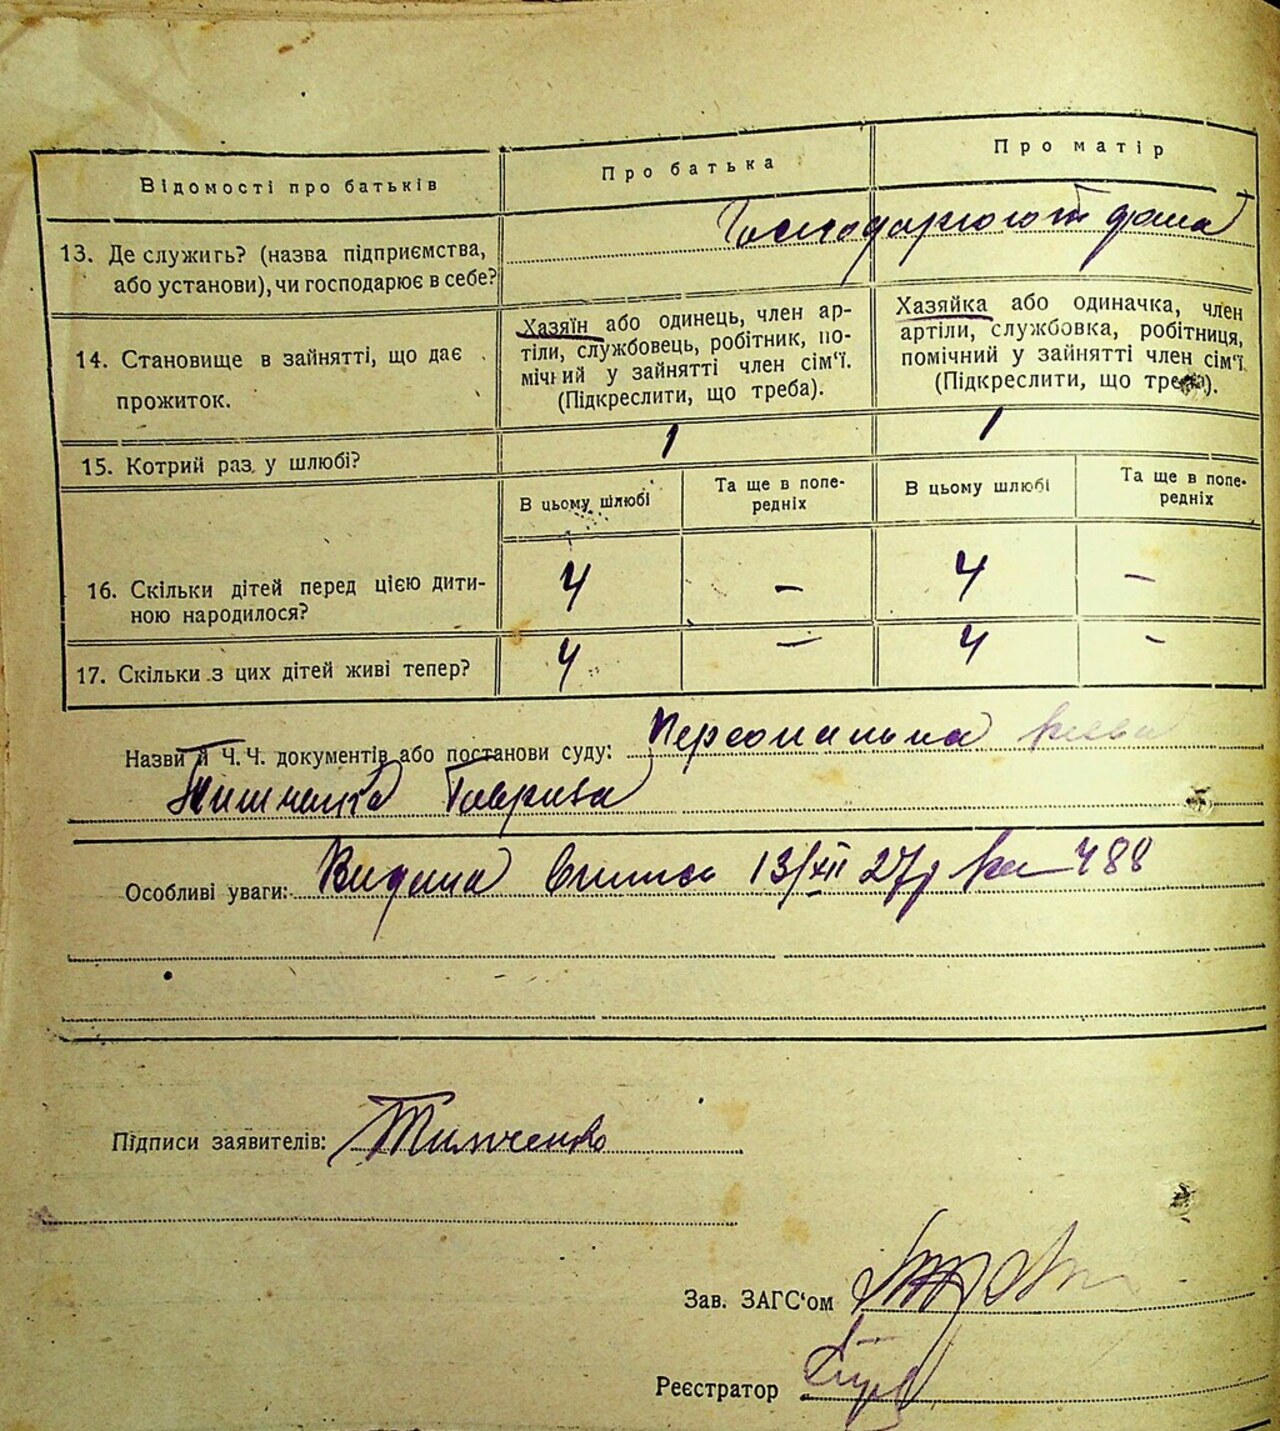 Відомості про батьків
Про батька
Про матір
13. Де служить? (назва підприємства,
або установи), чи господарює в себе?
Господарюют дома
14. Становище в зайнятті, що дає
прожиток.
Хазяїн або одинець, член ар-
тілі, службовець, робітник, по-
мічний у зайнятті член сім'ї.
(Підкреслити, що треба).
Хазяйка або одиначка, член
артіли, службовка, робітниця,
помічний у зайнятті член сім'ї
(Підкреслити, що треба).
15. Котрий раз у шлюбі?
1
1
В цьому шлюбі
Та ще в попе-
редніх
В цьому шлюбі
Та ще в попе-
редніх
16. Скільки дітей перед цією дити-
ною народилося?
4 – 4 –
17. Скільки з цих дітей живі тепер?
4 – 4 –
Назви й Ч.Ч. документів або постанови суду: Персональна
Тимченка Гаврила
Особливі уваги: Видана 13/XII 27р 488
Підписи заявителів: Тимченко
Зав. ЗАГС'ом
Реєстратор